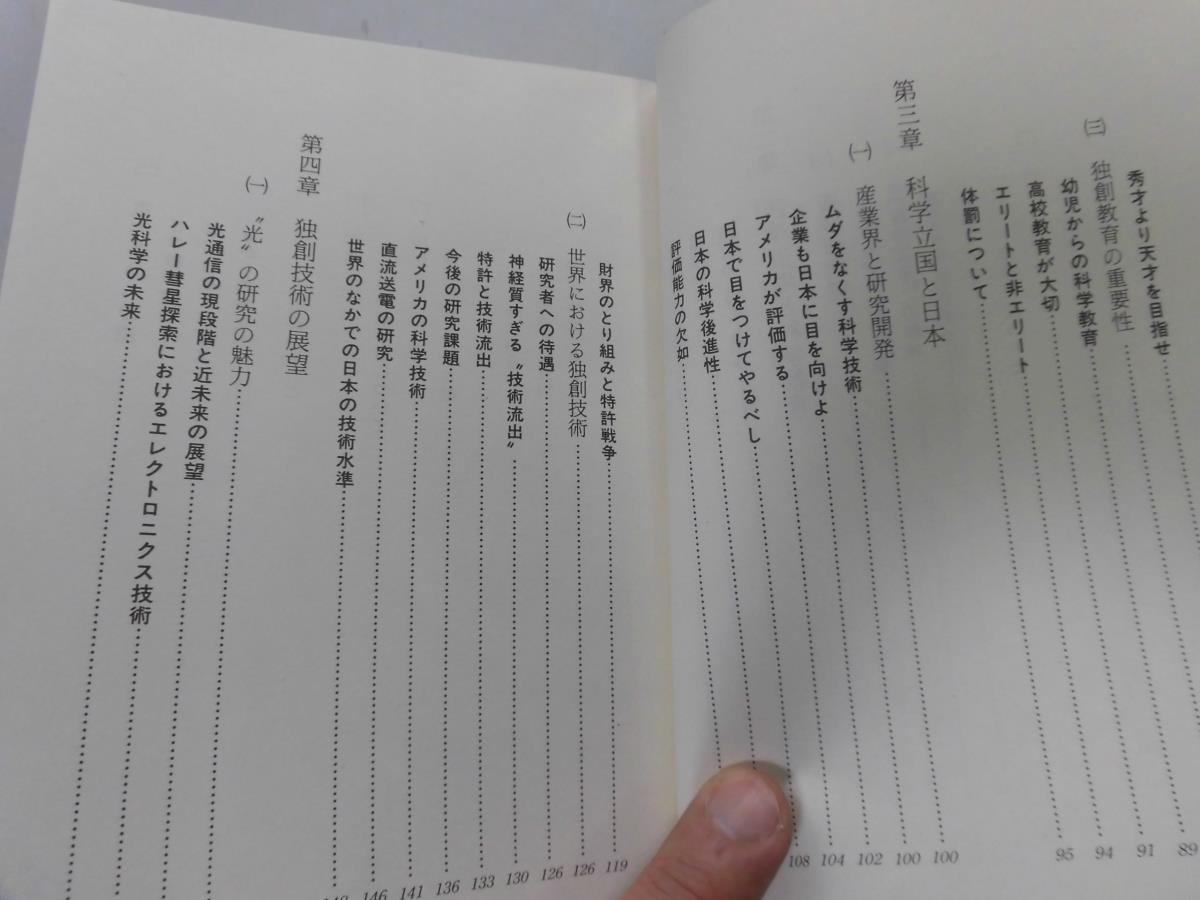 秀才より天才を目指せ……89
㈢ 独創教育の重要性……91
幼児からの科学教育……94
高校教育が大切……95
エリートと非エリート
体罰について……
第三章 科学立国と日本 100
㈠ 産業界と研究開発……100
ムダをなくす科学技術……102
企業も日本に目を向けよ……104
アメリカが評価する……108
日本で目をつけてやるべし……
日本の科学後進性……
評価能力の欠如……
財界のとり組みと特許戦争……119
㈡ 世界における独創技術……126
研究者への待遇……126
神経質すぎる〝技術流出〟……130
特許と技術流出……133
今後の研究課題……136
アメリカの科学技術……141
直流送電の研究……146
世界のなかでの日本の技術水準……
第四章 独創技術の展望
㈠ 〝光〟の研究の魅力……
光通信の現段階と近未来の展望……
ハレー彗星探索におけるエレクトロニクス技術……
光科学の未来……